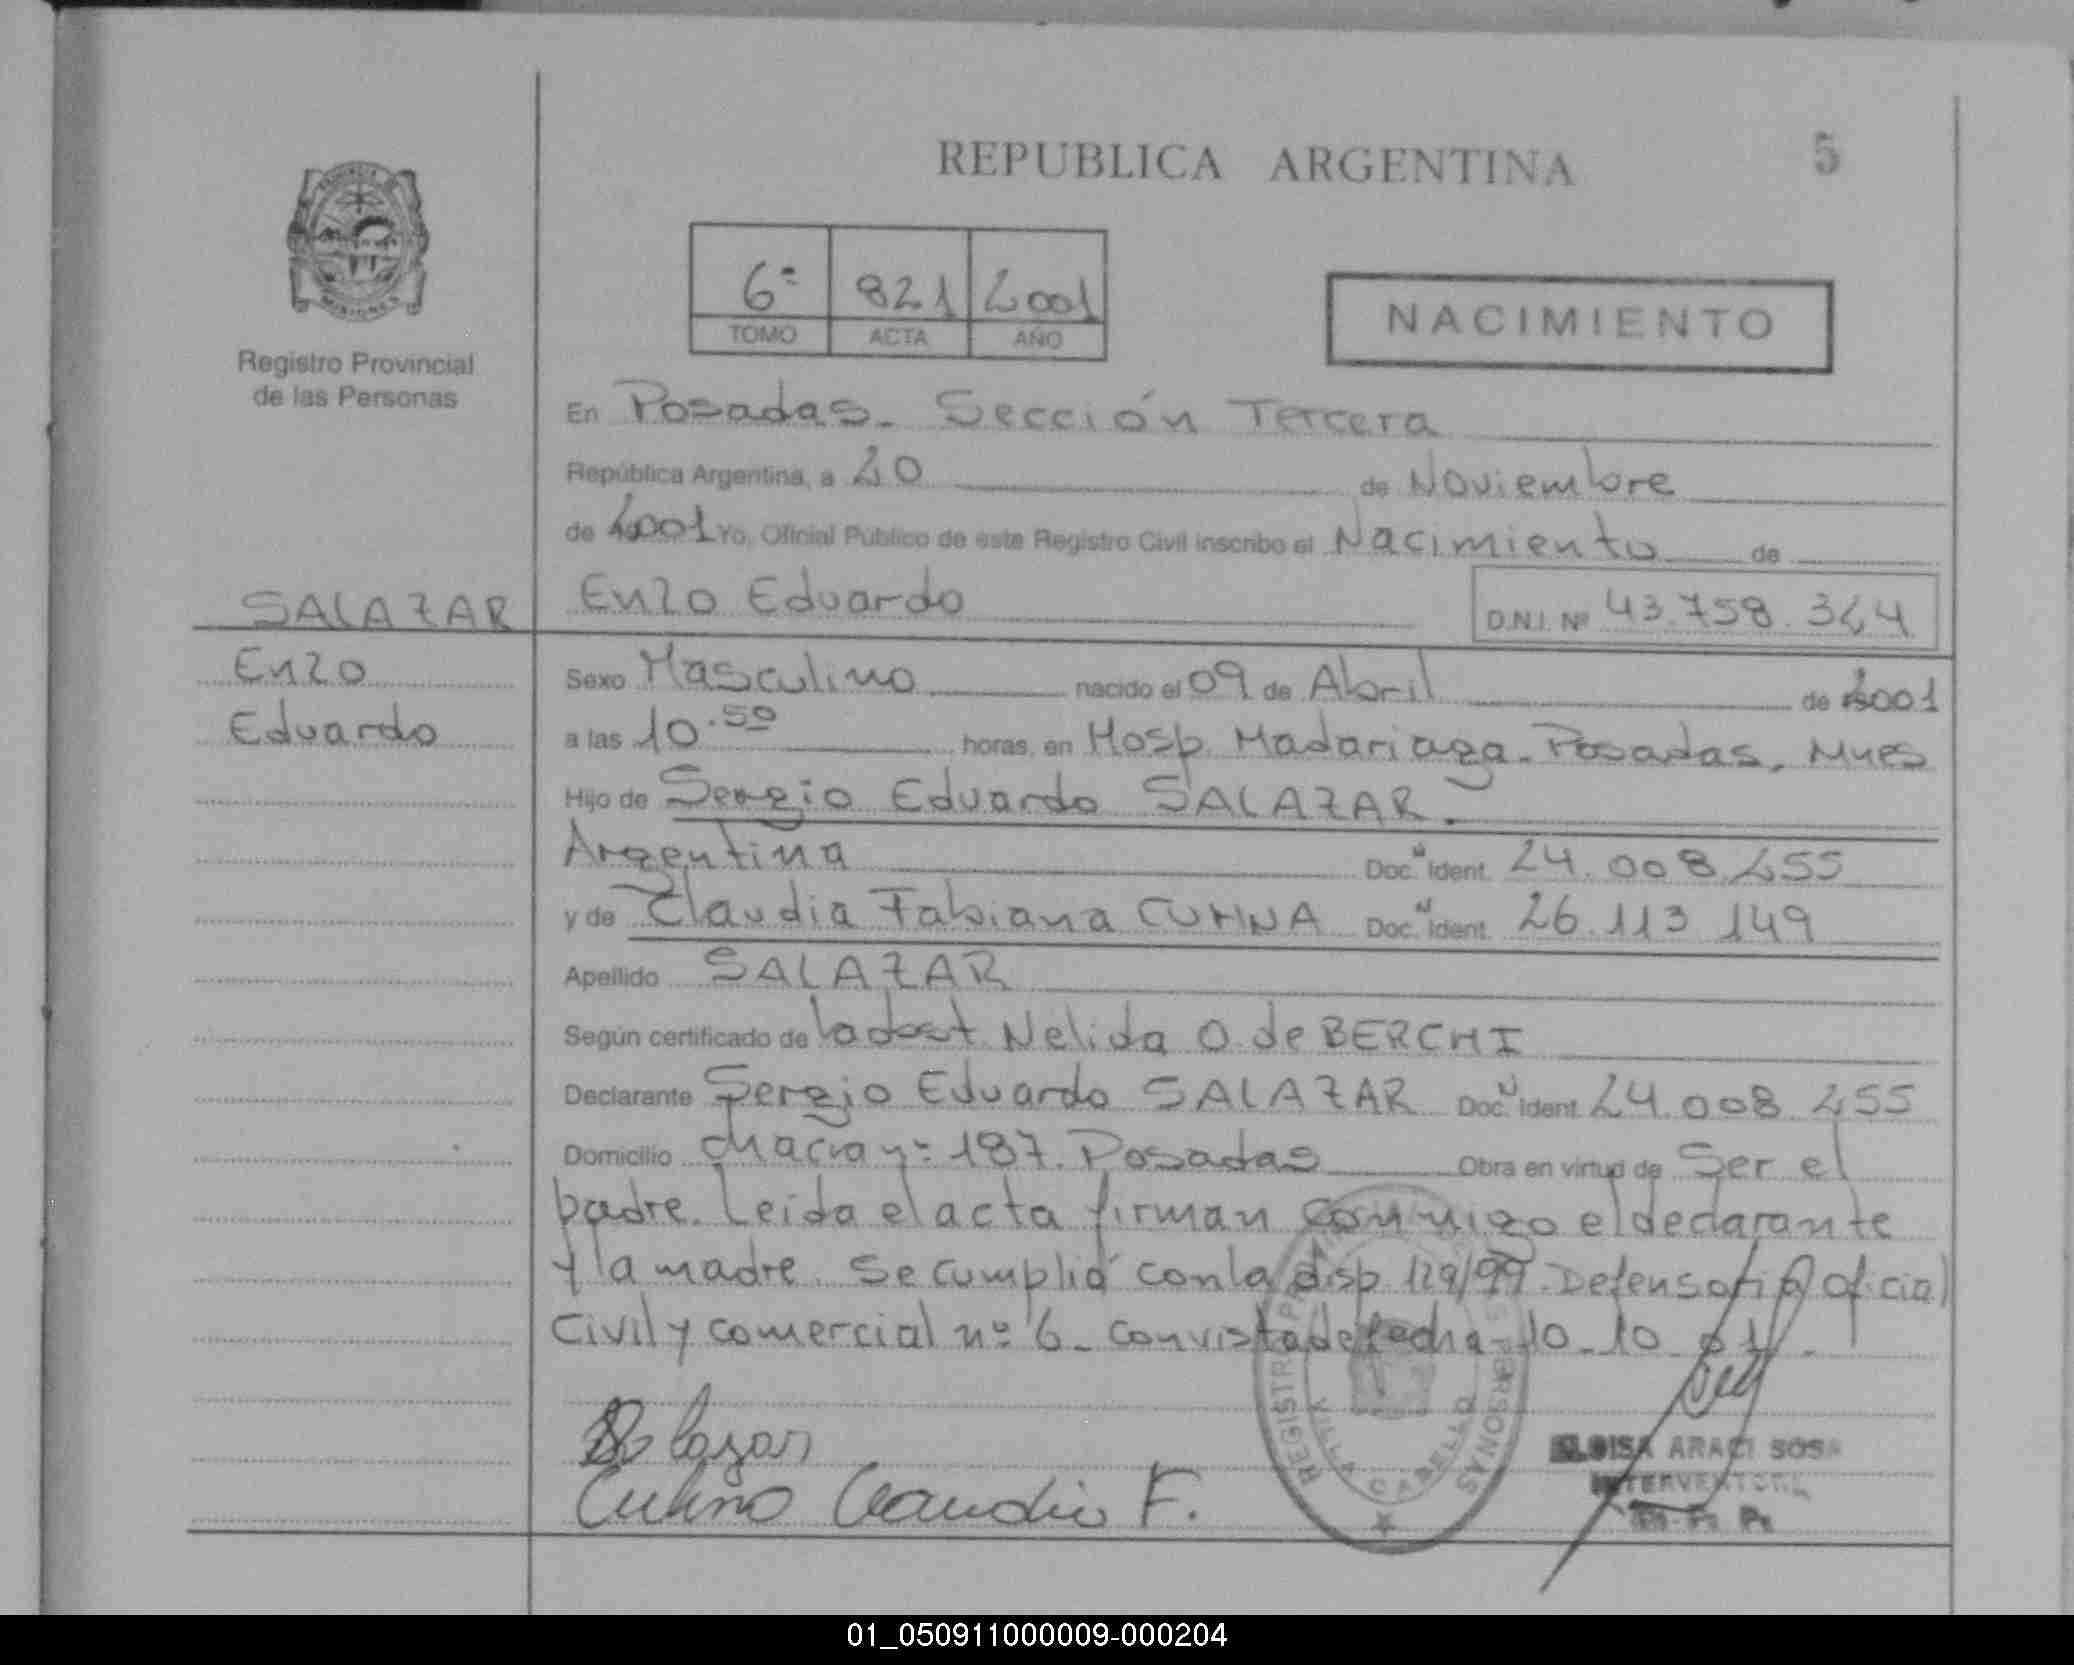 REPUBLICA ARGENTINA
5
PROVINCIA DE
MISIONES
Registro Provincial
de las Personas
6º 821 2001
TOMO ACTA AÑO
NACIMIENTO
En Posadas. Sección Tercera
República Argentina, a 20 de Noviembre
de 2001 Yo, Oficial Público de este Registro Civil inscribo el Nacimiento de
SALAZAR
Enzo Eduardo D.N.I. Nº 43.758.324
Enzo
Eduardo
Sexo Masculino nacido el 09 de Abril de 2001
a las 10.50 horas, en Hosp. Madariaga. Posadas, Mnes
Hijo de Sergio Eduardo SALAZAR.
Argentina Doc. Ident. 24.008.255
y de Claudia Fabiana Doc. Ident. 26.113.149
Apellido SALAZAR
Según certificado de la obst. Nelida O. de BERCHI
Declarante Sergio Eduardo SALAZAR Doc. Ident. 24.008.255
Domicilio chacra nº 187. Posadas Obra en virtud de Ser el
padre. Leida el acta firman conmigo el declarante
y la madre. Se cumplió con la disp. 129/99. Defensoria Oficial
Civil y comercial nº 6. con vista de fecha 10.10.01.
Salazar
Claudia F.
REGISTRO PROVINCIAL DE LAS PERSONAS
VILLA CABELLO
ELOISA ARACI SOSA
INTERVENTORA
01_050911000009-000204